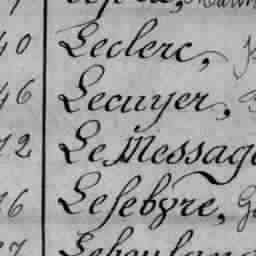 40 Leclerc,
46 Lecuyer,
72 Le Message
76 Lefebvre,